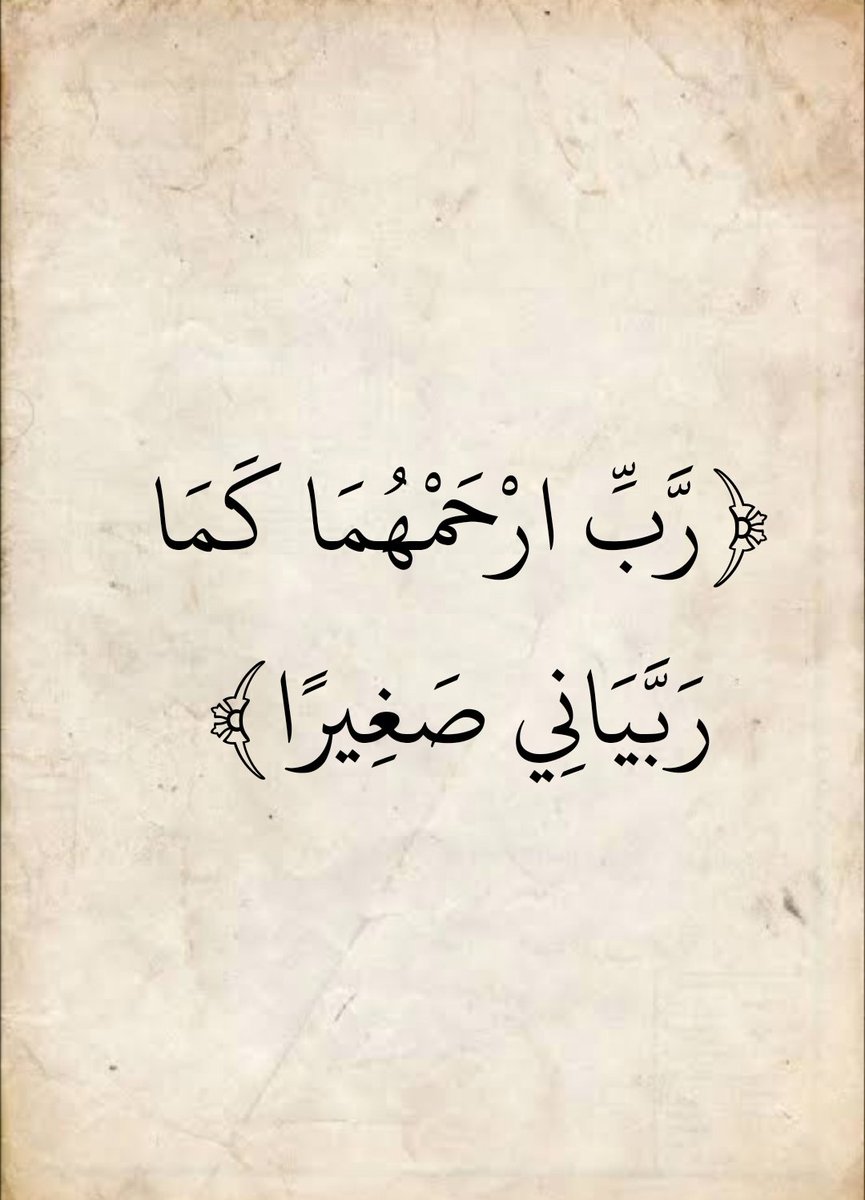 ﴿رَّبِّ ارْحَمْهُمَا كَمَا
رَبَّيَانِي صَغِيرًا﴾